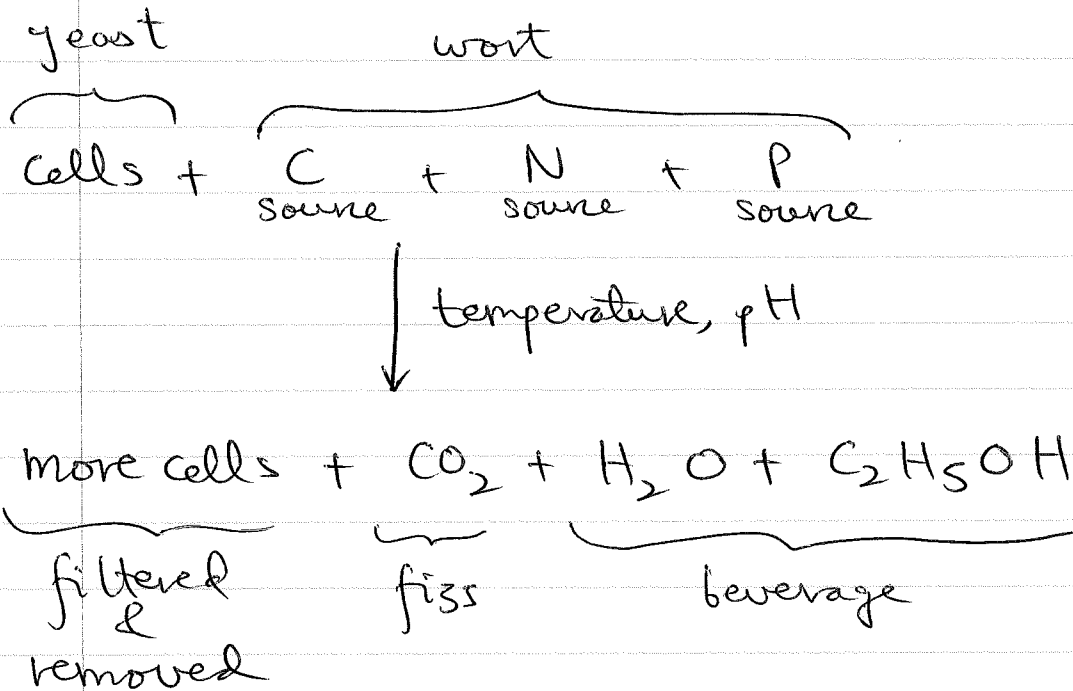 yeast wort
cells + C + N + P
source source source
temperature, pH
more cells + CO₂ + H₂O + C₂H₅OH
filtered fizz beverage
&
removed